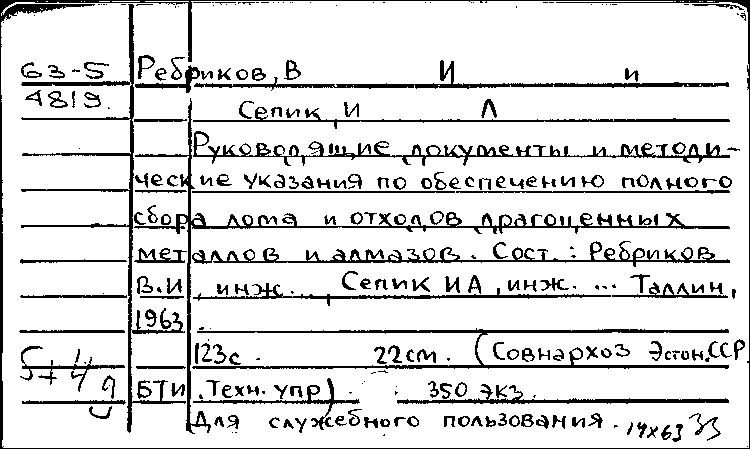 63-5 Ребриков, В И и
4819. Сепик, И Л
Руководящие документы и методи-
ческие указания по обеспечению полного
сбора лома и отходов драгоценных
металлов и алмазов. Сост.: Ребриков
В.И, инж., Сепик И А, инж. ... Таллин,
1963.
123с. 22см. (Совнархоз Эстон.ССР.
БТИ. Техн. упр) 350 экз.
Для служебного пользования.